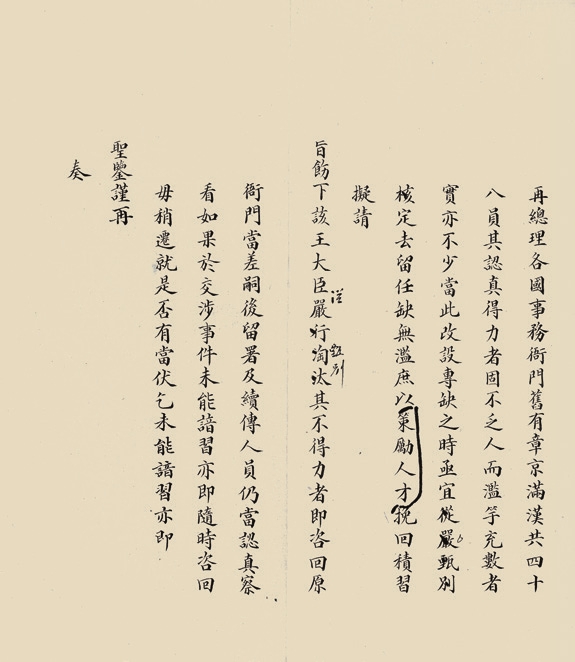 再總理各國事務衙門舊有章京滿漢共四十
八員其認真得力者固不乏人而濫竽充數者
實亦不少當此改設專缺之時亟宜從嚴甄別
核定去留任缺無濫庶以策勵人才挽回積習
擬請
從 甄別
旨飭下該王大臣嚴行淘汰其不得力者即咨回原
衙門當差嗣後留署及續傳人員仍當認真察
看如果於交涉事件未能諳習亦即隨時咨回
毋稍遷就是否有當伏乞未能諳習亦即
聖鑒謹再
奏